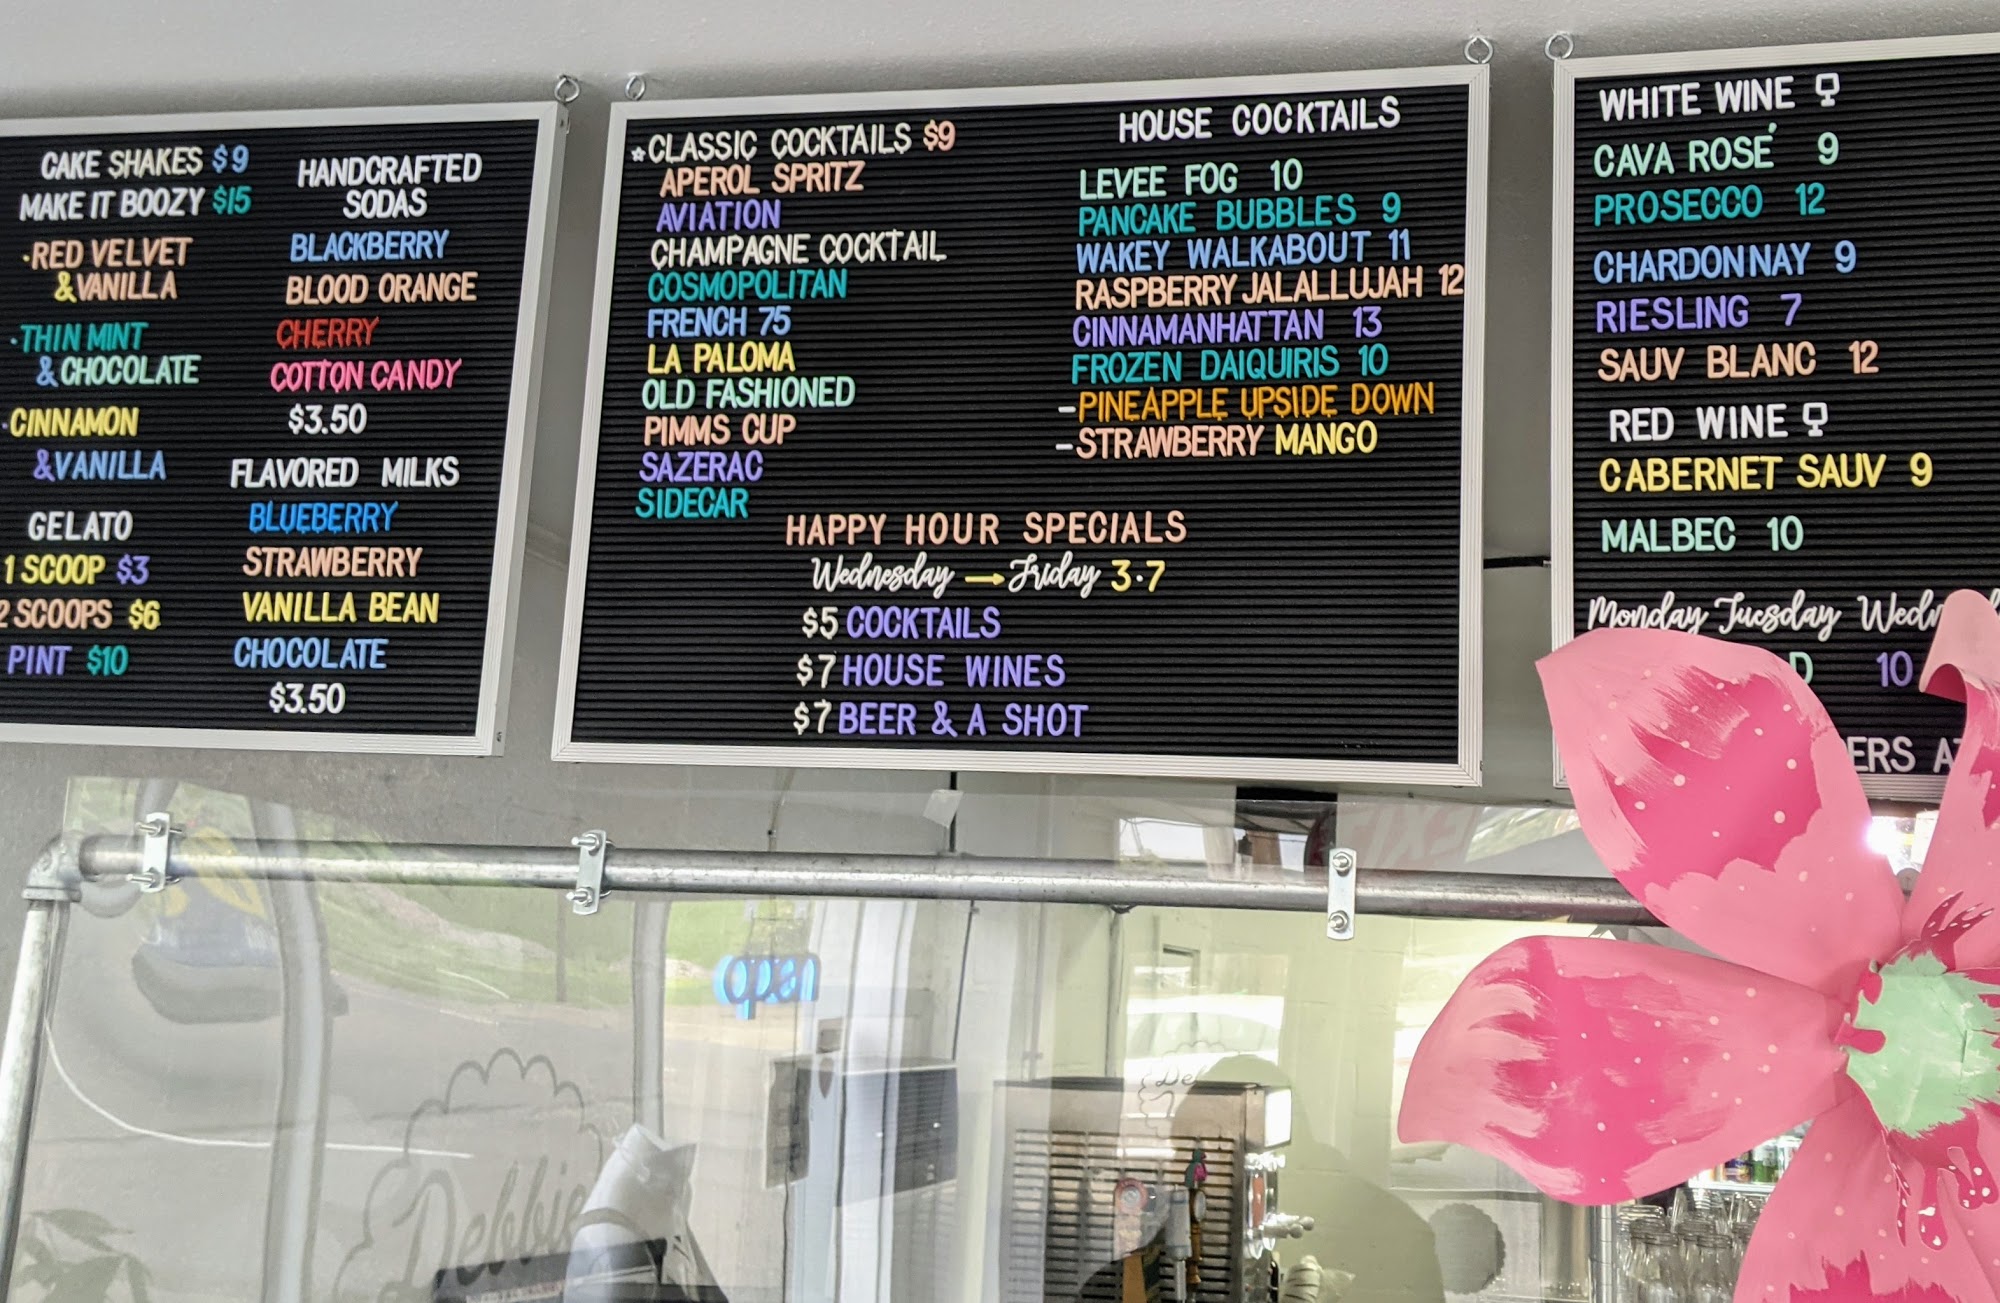 CAKE SHAKES $9
MAKE IT BOOZY $15
·RED VELVET
&VANILLA
·THIN MINT
&CHOCOLATE
·CINNAMON
&VANILLA
GELATO
1 SCOOP $3
2 SCOOPS $6
PINT $10
HANDCRAFTED
SODAS
BLACKBERRY
BLOOD ORANGE
CHERRY
COTTON CANDY
$3.50
FLAVORED MILKS
BLUEBERRY
STRAWBERRY
VANILLA BEAN
CHOCOLATE
$3.50
☆CLASSIC COCKTAILS $9
APEROL SPRITZ
AVIATION
CHAMPAGNE COCKTAIL
COSMOPOLITAN
FRENCH 75
LA PALOMA
OLD FASHIONED
PIMMS CUP
SAZERAC
SIDECAR
HOUSE COCKTAILS
LEVEE FOG 10
PANCAKE BUBBLES 9
WAKEY WALKABOUT 11
RASPBERRY JALALLUJAH 12
CINNAMANHATTAN 13
FROZEN DAIQUIRIS 10
-PINEAPPLE UPSIDE DOWN
-STRAWBERRY MANGO
HAPPY HOUR SPECIALS
Wednesday → Friday 3·7
$5 COCKTAILS
$7 HOUSE WINES
$7 BEER & A SHOT
WHITE WINE
CAVA ROSÉ 9
PROSECCO 12
CHARDONNAY 9
RIESLING 7
SAUV BLANC 12
RED WINE
CABERNET SAUV 9
MALBEC 10
Monday Tuesday
10
open
Debbie